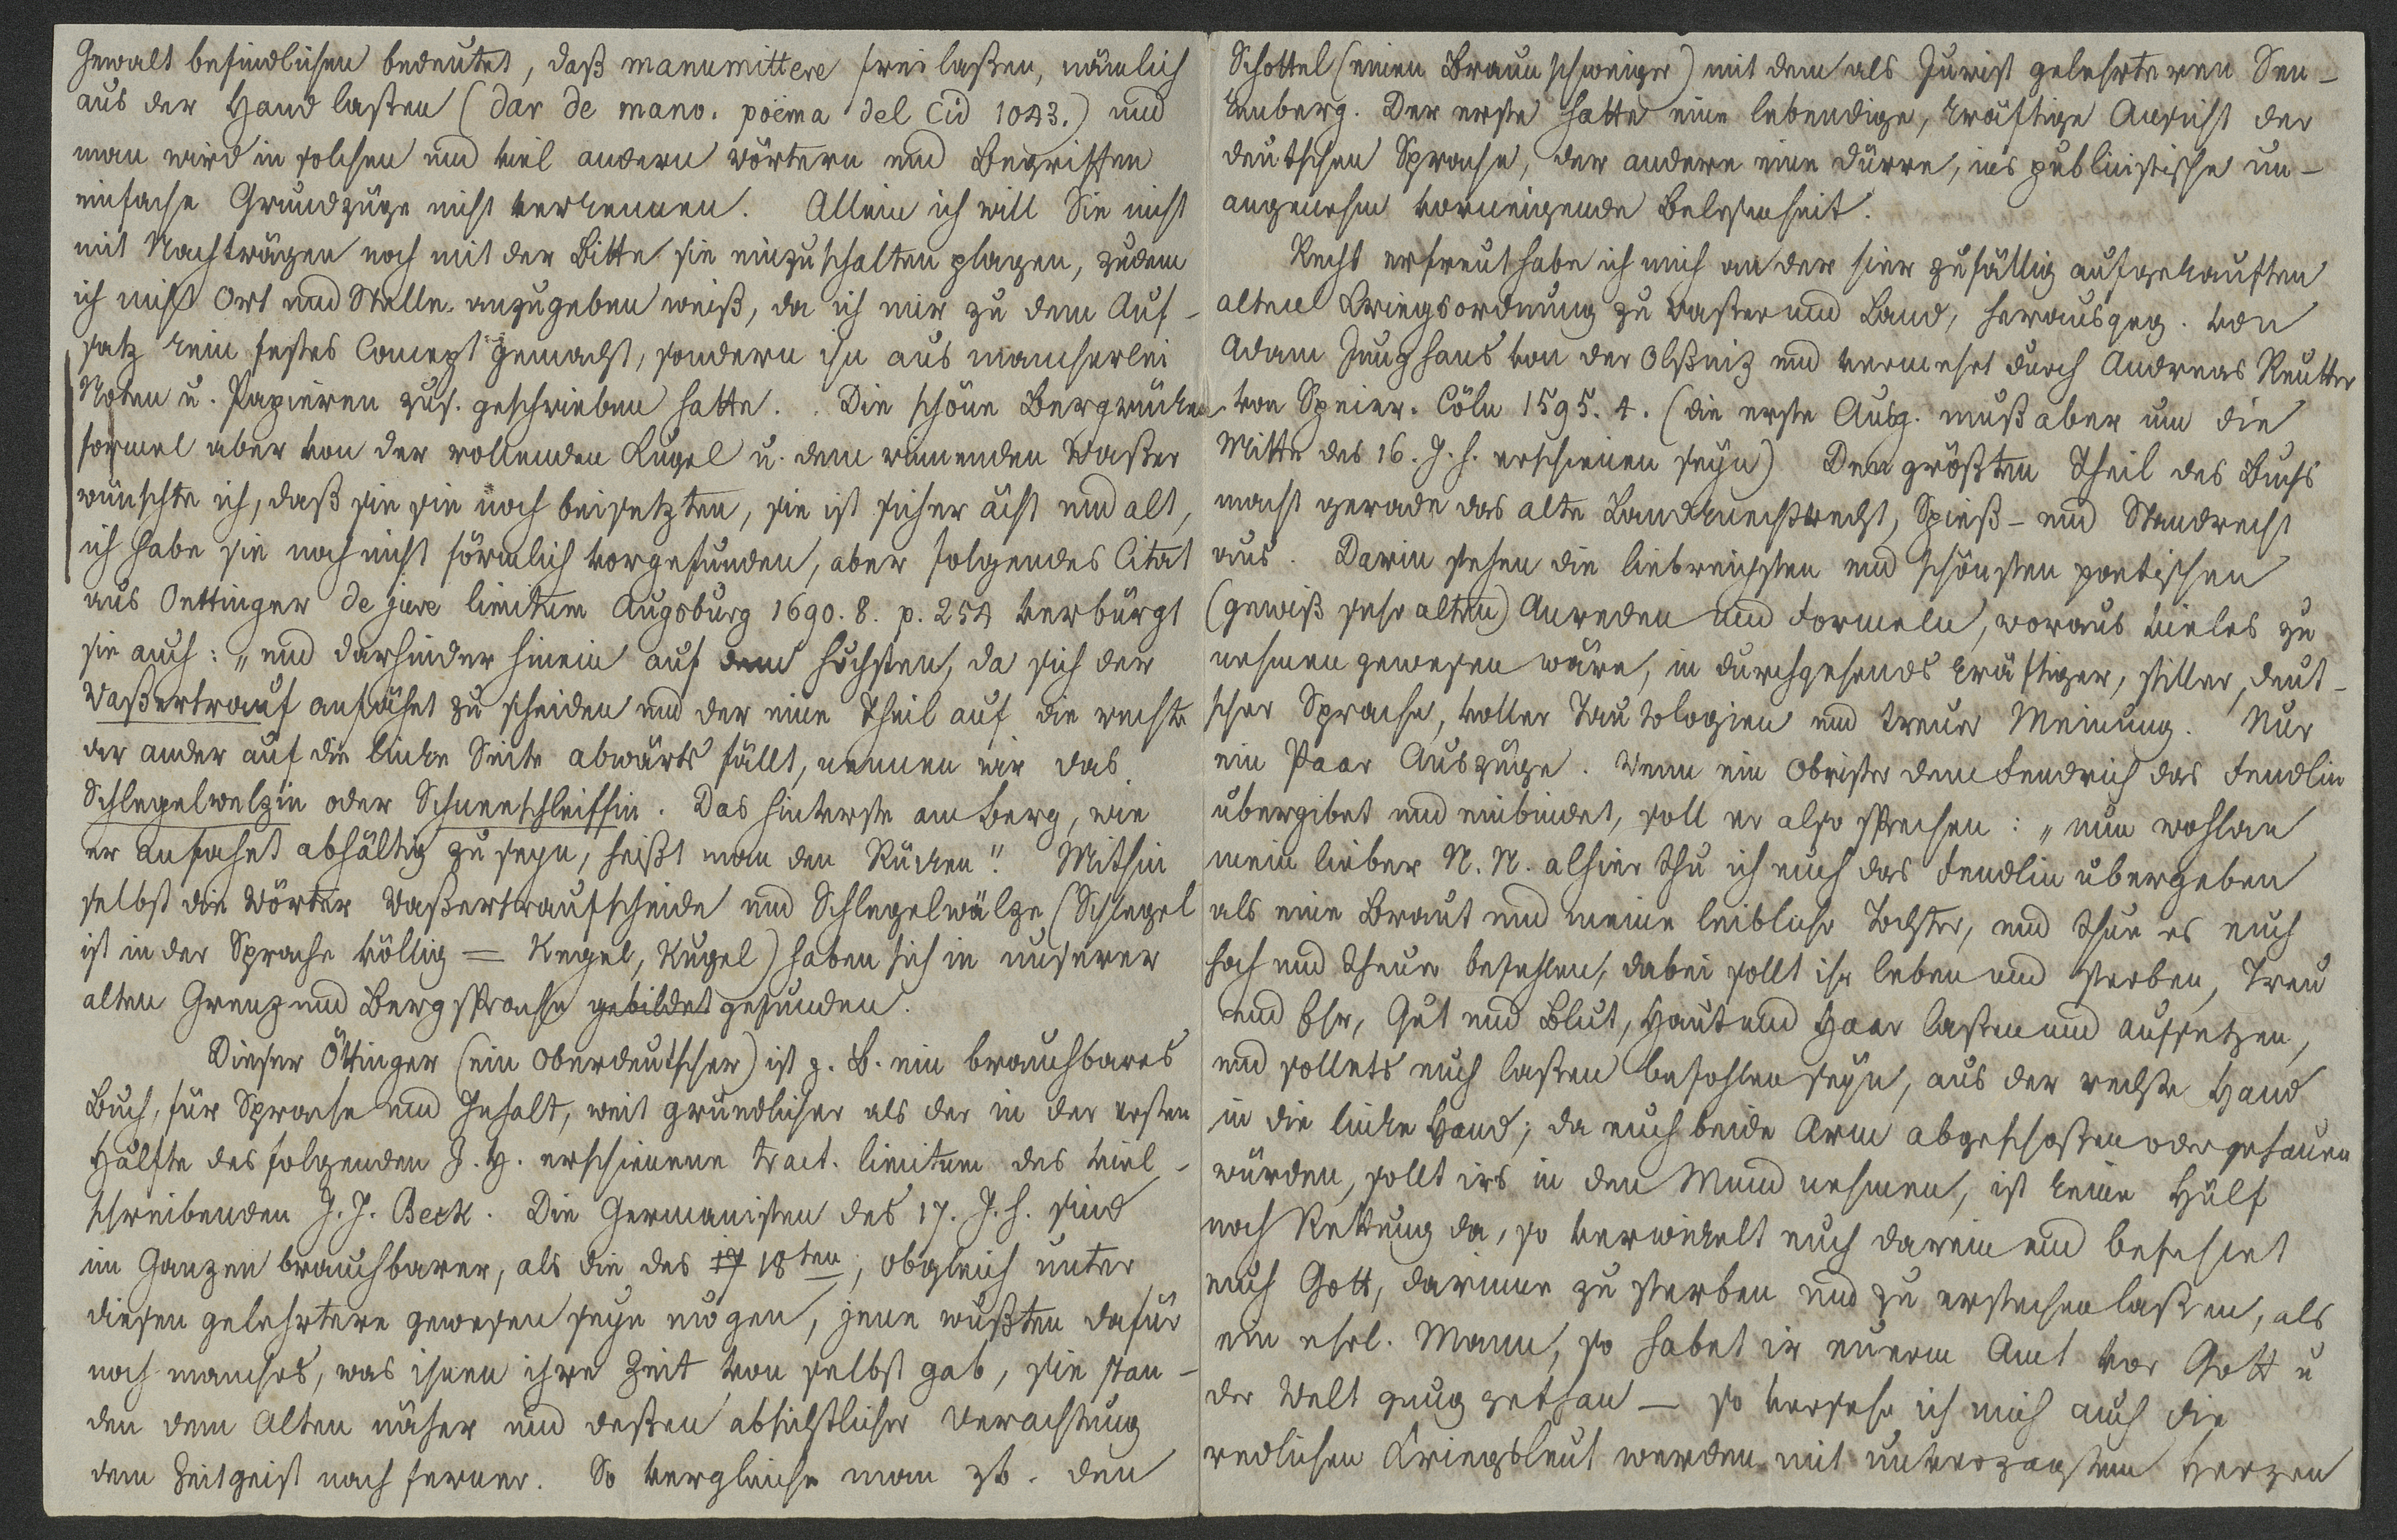 Gewalt befindlichen bedeutet, daß manumittere freilaßen, nämlich
aus der Hand laßen (dar de mano. poëma del Cid 1043.) und
man wird in solchen und viel andern wörtern und Begriffen
einfache Grundzüge nicht verkennen. Allein ich will Sie nicht
mit Nachträgen noch mit der Bitte sie einzuschalten plagen, zudem
ich nicht Ort und Stelle anzugeben weiß, da ich mir zu dem Auf-
satz kein festes Concept gemacht, sondern ihn aus mancherlei
Noten u. Papieren zus. geschrieben hatte. Die schöne Bergrücken
formel aber von der rollenden Kugel u. dem rinnenden Waßer
wünschte ich, daß sie sie noch beisetzten, sie ist sicher ächt und alt,
ich habe sie noch nicht förmlich vorgefunden, aber folgendes Citat
aus Oettinger de jure limitum Augsburg 1690. 8. p. 254 verbürgt
sie auch: „und darhinder hinein auf dem höchsten, da sich der
Waßertrauf anfähet zu scheiden und der eine Theil auf die rechte
der ander auf die linke Seite abwärts fällt, nennen wir das
Schlegelwelzin oder Schneeschleiffin. Das hinterste am Berg, wie
er anfahet abhältig zu seyn, heißt man den Rücken“. Mithin
selbst die Wörter Waßertraufscheide und Schlegelwälze (Schlegel
ist in der Sprache völlig = Kegel, Kugel) haben sich in unserer
alten Grenz und Bergsprache gebildet gefunden.
Dieser Öttinger (ein Oberdeutscher) ist z. B. ein brauchbares
Buch, für Sprache und Inhalt, weit gründlicher als der in der ersten
Hälfte des folgenden J. H. erschienene tract. limitum des viel-
schreibenden J. J. Beck. Die Germanisten des 17. J. h. sind
im Ganzen brauchbarer, als die des 17 18ten, obgleich unter
diesen gelehrtere gewesen seyn mögen, jene wußten dafür
noch manches, was ihnen ihre Zeit von selbst gab, sie stan-
den dem Alten näher und deßen absichtlicher Verachtung
dem Zeitgeist nach ferner. So vergleiche man zb. den
Schottel (einen Braunschweiger) mit dem als Jurist gelehrteren Sen-
kenberg. Der erste hatte eine lebendige, kräftige Ansicht der
deutschen Sprache, der andere eine dürre, ins publicistische un-
angenehm vorneigende Belesenheit.
Recht erfreut habe ich mich an der hier zufällig aufgekauften
alten Kriegsordnung zu waßer und Land, herausgeg. von
Adam Junghans von der Olßniz und vermehrt durch Andreas Reutter
von Speier. Cöln 1595. 4. (die erste Ausg. muß aber um die
Mitte des 16. J. h. erschienen seyn) Den größten Theil des Buchs
macht gerade das alte Landknechtsrecht, Spieß- und Standrecht
aus. Darin stehen die liebreichsten und schönsten poetischen
(gewiß sehr alten) Anreden und Formeln, woraus vieles zu
nehmen gewesen wäre, in durchgehends kräftiger, stiller, deut-
scher Sprache, voller Tautologien und treuer Meinung. Nur
ein Paar Auszüge. Wenn ein Obrister dem Fendrich das Fendlin
übergibet und einbindet, soll er also sprechen: „nun wohlan
mein lieber N. N. alhier thu ich euch das Fendlin übergeben
als eine Braut und meine leibliche Tochter, und thue es euch
hoch und theuer befehlen, dabei sollt ihr leben und sterben, Treu
und Ehr, Gut und Blut, Haut und Haar laßen und aufsetzen,
und sollets euch laßen befohlen seyn, aus der rechte Hand
in die linke Hand; da euch beide Arm abgeschoßen oder gehauen
würden, sollt irs in den Mund nehmen, ist keine Hülf
noch Rettung da, so verwickelt euch darein und befehlet
euch Gott, darinne zu sterben und zu erstechen laßen, als
ein ehrl. Mann, so habet ir euerm Amt vor Gott u
der Welt gnug gethan — so versehe ich mich auch die
redlichen Kriegsleut werden mit unverzagtem Herzen